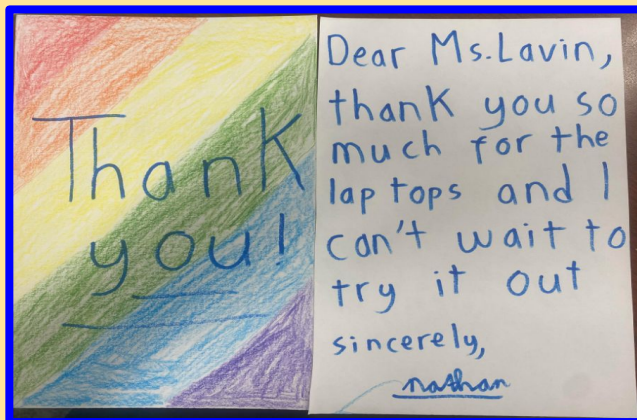 Thank
you!
Dear Ms. Lavin,
thank you so
much for the
lap tops and I
can't wait to
try it out
sincerely,
nathan